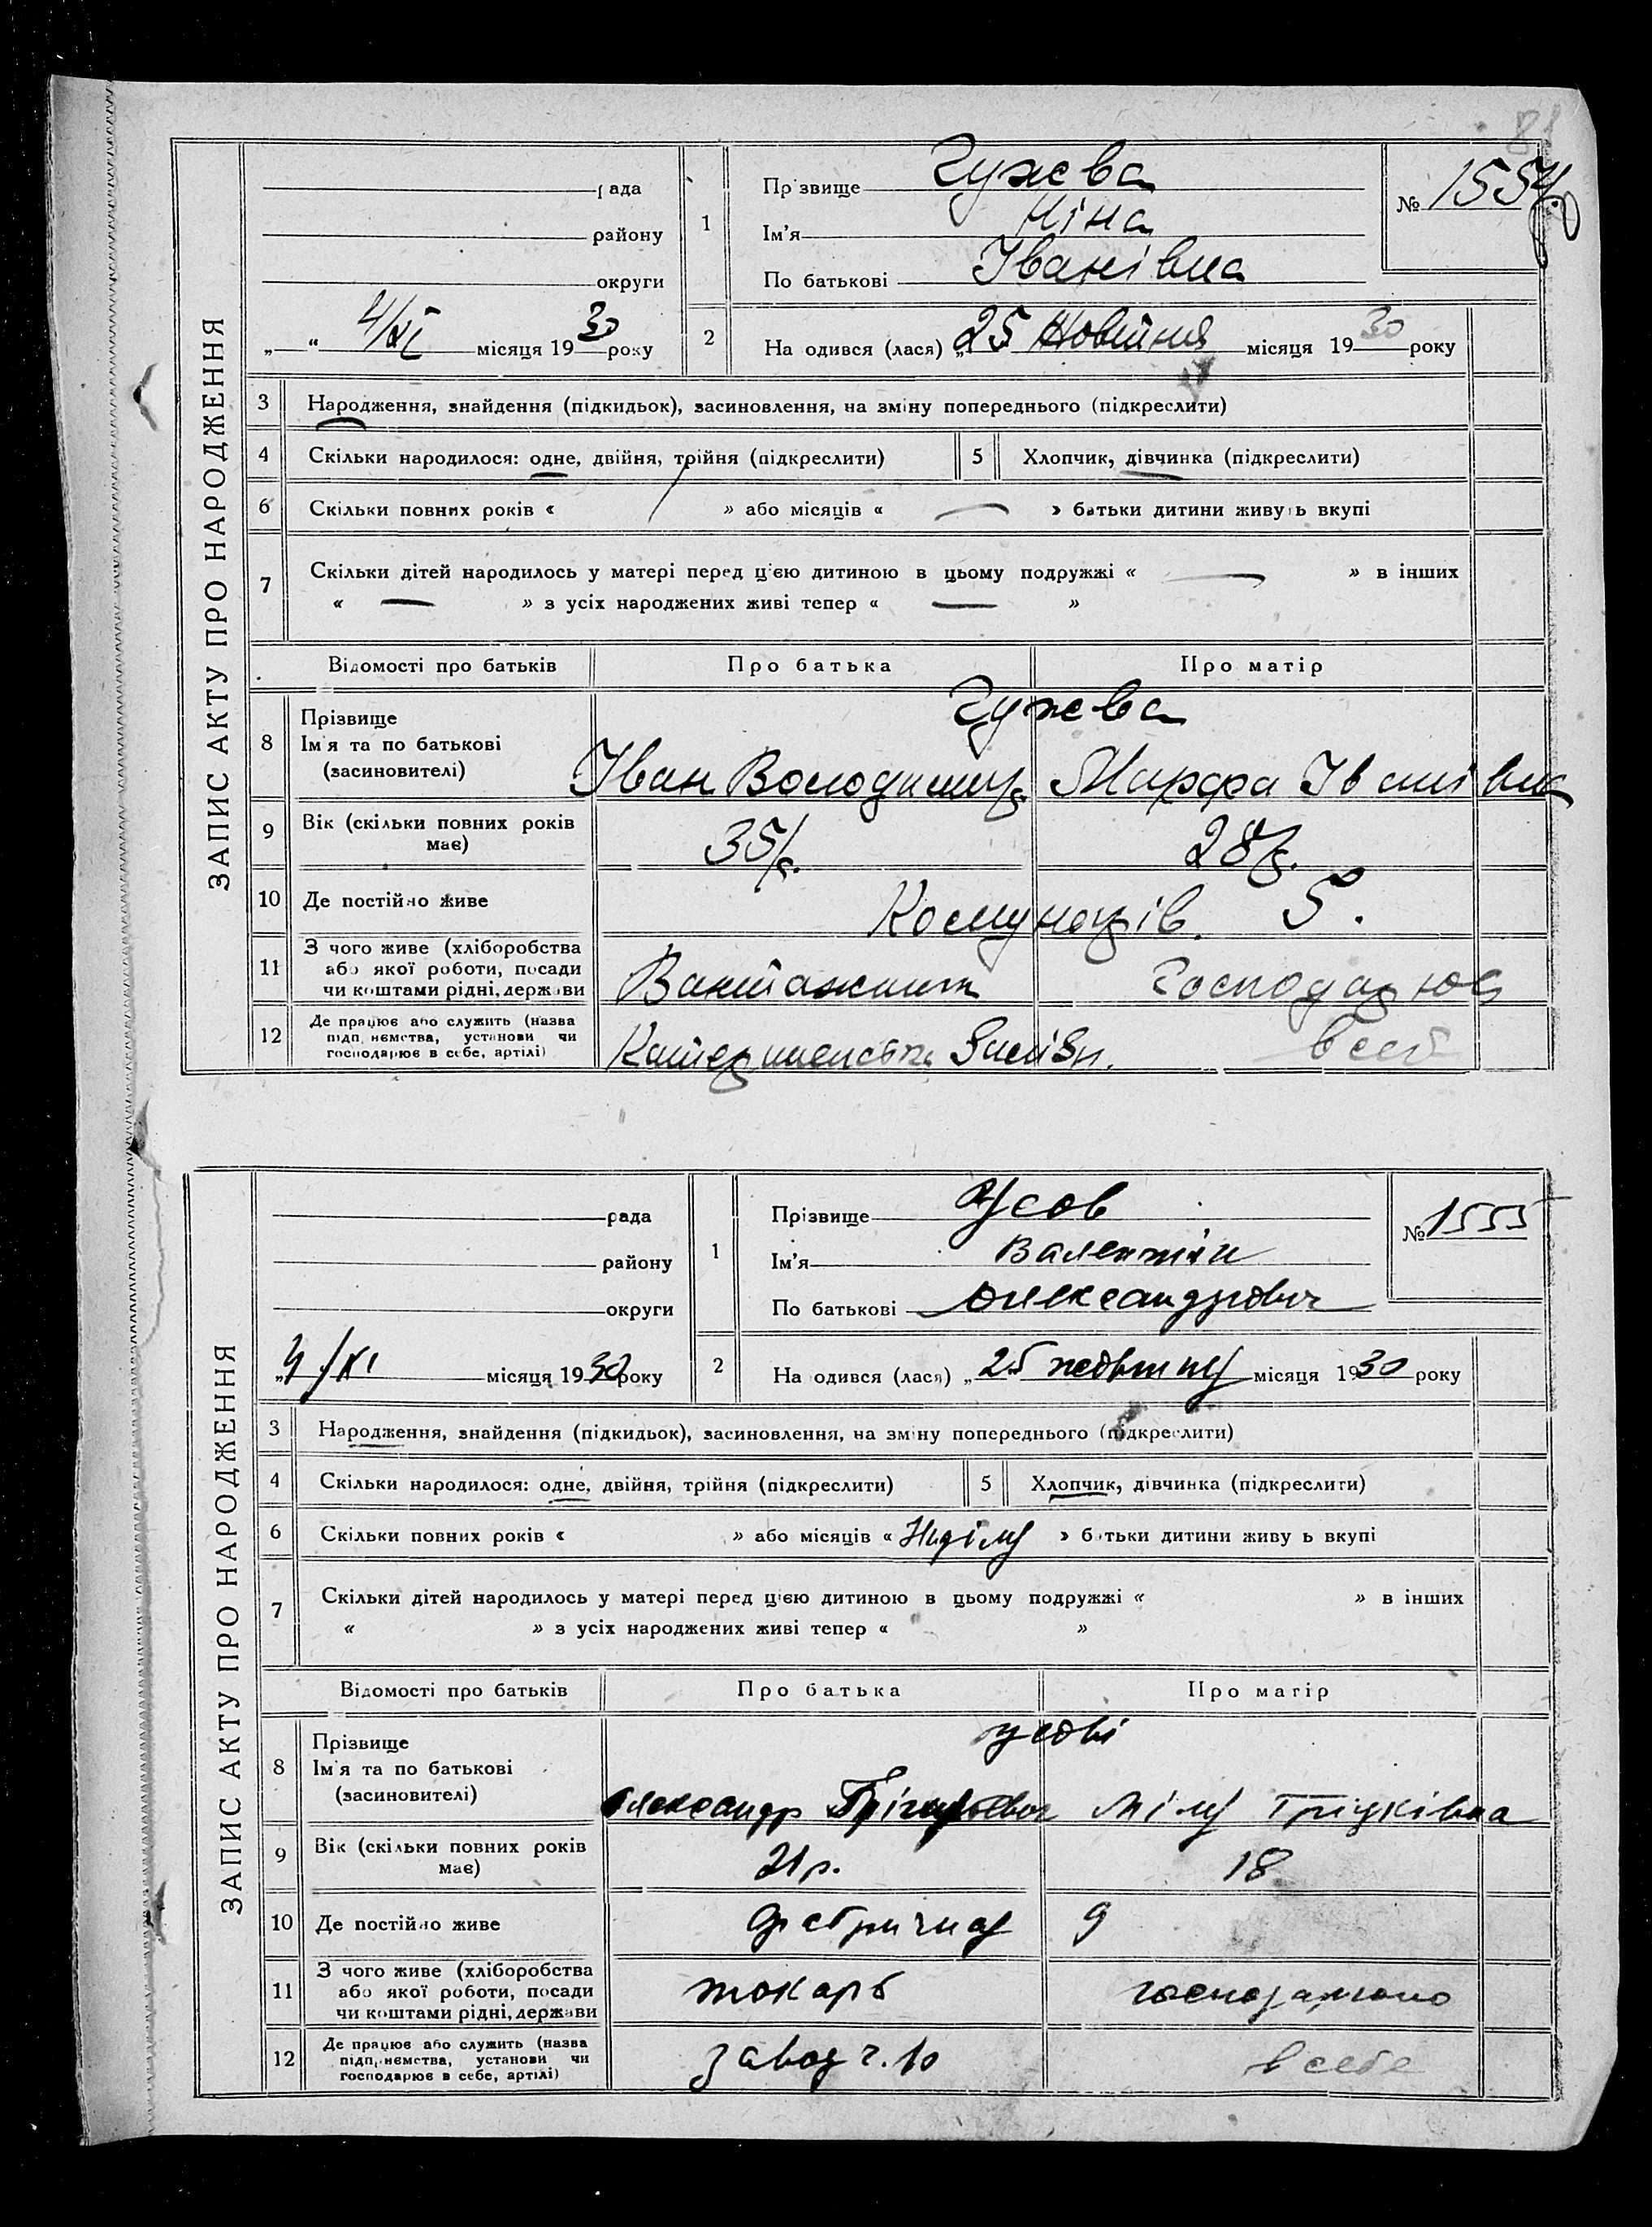 81
ЗАПИС АКТУ ПРО НАРОДЖЕННЯ
рада
району
округи
„ “ 4/XI місяця 1930 року
1
Прізвище Гужева
Ім'я Ніна
По батькові Іванівна
№ 1554
2 На одився (лася) „25 Жовтня місяця 1930 року
3 Народження, знайдення (підкидьок), засиновлення, на зміну попереднього (підкреслити)
4 Скільки народилося: одне, двійня, трійня (підкреслити) 5 Хлопчик, дівчинка (підкреслити)
6 Скільки повних років « / » або місяців « — » батьки дитини живуть вкупі
7 Скільки дітей народилось у матері перед цією дитиною в цьому подружжі « — » в інших
« — » з усіх народжених живі тепер « — »
Відомості про батьків Про батька Про матір
8 Прізвище Гужева
Ім'я та по батькові
(засиновителі) Іван Володимир Марфа Іванівна
9 Вік (скільки повних років має) 35р. 28р.
10 Де постійно живе Комунарів. 5.
11 З чого живе (хліборобства
або якої роботи, посади
чи коштами рідні, держави Вантажник Господарює
12 Де працює або служить (назва
підприємства, установи чи
господарює в себе, артілі) в себе
ЗАПИС АКТУ ПРО НАРОДЖЕННЯ
рада
району
округи
„4/XI місяця 1930 року
1
Прізвище Усов
Ім'я Валентін
По батькові Олександрович
№ 1555
2 На одився (лася) „25 жовтня місяця 1930 року
3 Народження, знайдення (підкидьок), засиновлення, на зміну попереднього (підкреслити)
4 Скільки народилося: одне, двійня, трійня (підкреслити) 5 Хлопчик, дівчинка (підкреслити)
6 Скільки повних років « » або місяців « » батьки дитини живу ь вкупі
7 Скільки дітей народилось у матері перед цією дитиною в цьому подружжі « » в інших
« » з усіх народжених живі тепер « »
Відомості про батьків Про батька Про матір
8 Прізвище Усові
Ім'я та по батькові
(засиновителі) Олександр
9 Вік (скільки повних років має) 21р. 18
10 Де постійно живе 9
11 З чого живе (хліборобства
або якої роботи, посади
чи коштами рідні, держави токарь
12 Де працює або служить (назва
підприємства, установи чи
господарює в себе, артілі) завод ч. 10 в себе